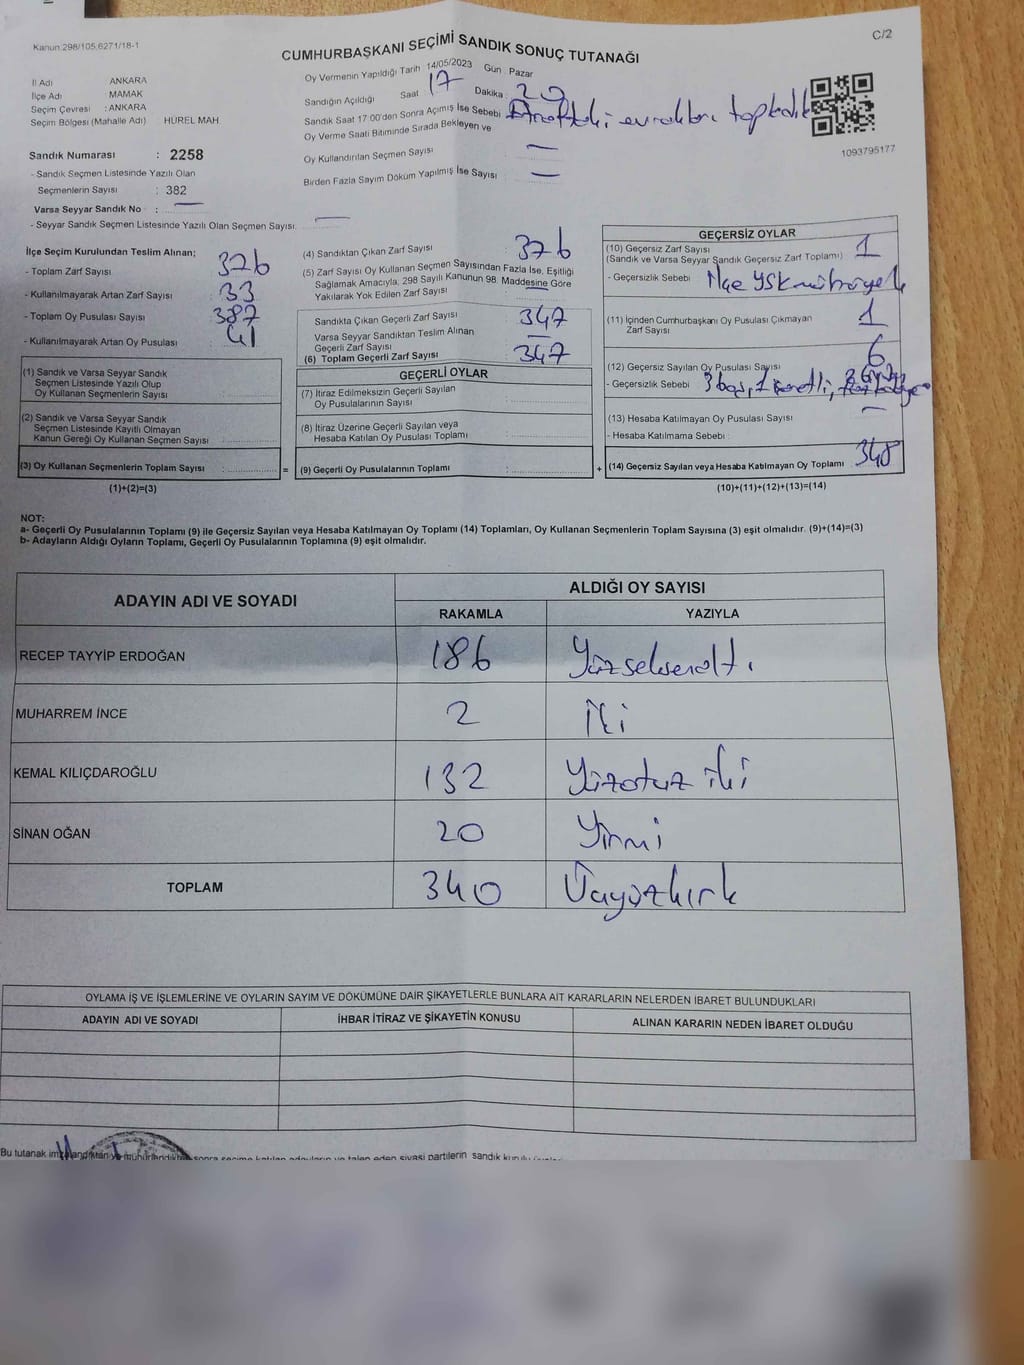 Kanun:298/105,6271/18-1
C/2
CUMHURBAŞKANI SEÇİMİ SANDIK SONUÇ TUTANAĞI
İl Adı ANKARA
İlçe Adı MAMAK
Seçim Çevresi : ANKARA
Seçim Bölgesi (Mahalle Adı) HÜREL MAH.
Sandık Numarası : 2258
- Sandık Seçmen Listesinde Yazılı Olan
Seçmenlerin Sayısı : 382
Varsa Seyyar Sandık No : —
- Seyyar Sandık Seçmen Listesinde Yazılı Olan Seçmen Sayısı: —
Oy Vermenin Yapıldığı Tarih 14/05/2023 Gün : Pazar
Sandığın Açıldığı Saat 17 Dakika : 20
Sandık Saat 17:00'den Sonra Açımış İse Sebebi Etraftaki evrakları topladık
Oy Verme Saati Bitiminde Sırada Bekleyen ve
Oy Kullandırılan Seçmen Sayısı —
Birden Fazla Sayım Döküm Yapılmış İse Sayısı : —
1093795177
İlçe Seçim Kurulundan Teslim Alınan;
- Toplam Zarf Sayısı : 376
- Kullanılmayarak Artan Zarf Sayısı : 33
- Toplam Oy Pusulası Sayısı : 387
- Kullanılmayarak Artan Oy Pusulası : 41
(1) Sandık ve Varsa Seyyar Sandık
Seçmen Listesinde Yazılı Olup
Oy Kullanan Seçmenlerin Sayısı :
(2) Sandık ve Varsa Seyyar Sandık
Seçmen Listesinde Kayıtlı Olmayan
Kanun Gereği Oy Kullanan Seçmen Sayısı :
(3) Oy Kullanan Seçmenlerin Toplam Sayısı :
(1)+(2)=(3)
(4) Sandıktan Çıkan Zarf Sayısı : 376
(5) Zarf Sayısı Oy Kullanan Seçmen Sayısından Fazla İse, Eşitliği
Sağlamak Amacıyla, 298 Sayılı Kanunun 98. Maddesine Göre
Yakılarak Yok Edilen Zarf Sayısı : —
Sandıkta Çıkan Geçerli Zarf Sayısı : 347
Varsa Seyyar Sandıktan Teslim Alınan
Geçerli Zarf Sayısı : —
(6) Toplam Geçerli Zarf Sayısı : 347
GEÇERLİ OYLAR
(7) İtiraz Edilmeksizin Geçerli Sayılan
Oy Pusulalarının Sayısı :
(8) İtiraz Üzerine Geçerli Sayılan veya
Hesaba Katılan Oy Pusulası Toplamı :
= (9) Geçerli Oy Pusulalarının Toplamı : +
GEÇERSİZ OYLAR
(10) Geçersiz Zarf Sayısı 1
(Sandık ve Varsa Seyyar Sandık Geçersiz Zarf Toplamı)
- Geçersizlik Sebebi : İlçe YSK
(11) İçinden Cumhurbaşkanı Oy Pusulası Çıkmayan 1
Zarf Sayısı
(12) Geçersiz Sayılan Oy Pusulası Sayısı 6
- Geçersizlik Sebebi : 3 boş, 1
(13) Hesaba Katılmayan Oy Pusulası Sayısı —
- Hesaba Katılmama Sebebi :
(14) Geçersiz Sayılan veya Hesaba Katılmayan Oy Toplamı : 348
(10)+(11)+(12)+(13)=(14)
NOT:
a- Geçerli Oy Pusulalarının Toplamı (9) ile Geçersiz Sayılan veya Hesaba Katılmayan Oy Toplamı (14) Toplamları, Oy Kullanan Seçmenlerin Toplam Sayısına (3) eşit olmalıdır. (9)+(14)=(3)
b- Adayların Aldığı Oyların Toplamı, Geçerli Oy Pusulalarının Toplamına (9) eşit olmalıdır.
ADAYIN ADI VE SOYADI
ALDIĞI OY SAYISI
RAKAMLA YAZIYLA
RECEP TAYYİP ERDOĞAN 186 Yüzseksenaltı.
MUHARREM İNCE 2 İki
KEMAL KILIÇDAROĞLU 132 Yüzotuz iki
SİNAN OĞAN 20 Yirmi
TOPLAM 340 Üçyüzkırk
OYLAMA İŞ VE İŞLEMLERİNE VE OYLARIN SAYIM VE DÖKÜMÜNE DAİR ŞİKAYETLERLE BUNLARA AİT KARARLARIN NELERDEN İBARET BULUNDUKLARI
ADAYIN ADI VE SOYADI İHBAR İTİRAZ VE ŞİKAYETİN KONUSU ALINAN KARARIN NEDEN İBARET OLDUĞU
Bu tutanak imzalandıktan ve mühürlendikten sonra seçime katılan adayların ve talep eden siyasi partilerin sandık kurulu